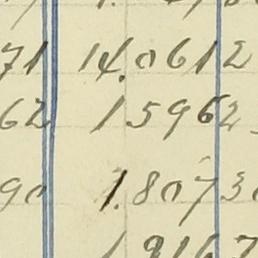 71 14.0612
62 1 5962
90 1.8073
1 8167